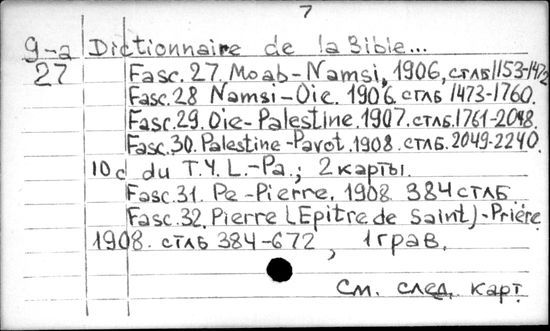 7
9-a Dictionnaire de la Bible...
27 Fasc. 27. Moab-Namsi, 1906, стлб 1153-1472
Fasc. 28 Namsi-Oie. 1906 стлб 1473-1760.
Fasc. 29. Oie-Palestine. 1907. стлб. 1761-2048.
Fasc. 30. Palestine-Pavot. 1908. стлб. 2049-2240.
10 c du T. Y. L.-Pa.; 2 карты.
Fasc. 31. Pe-Pierre. 1908. 384 стлб.
Fasc. 32. Pierre (Epitre de Saint)-Priére
1908. стлб 384-672, 1 грав.
См. след. карт